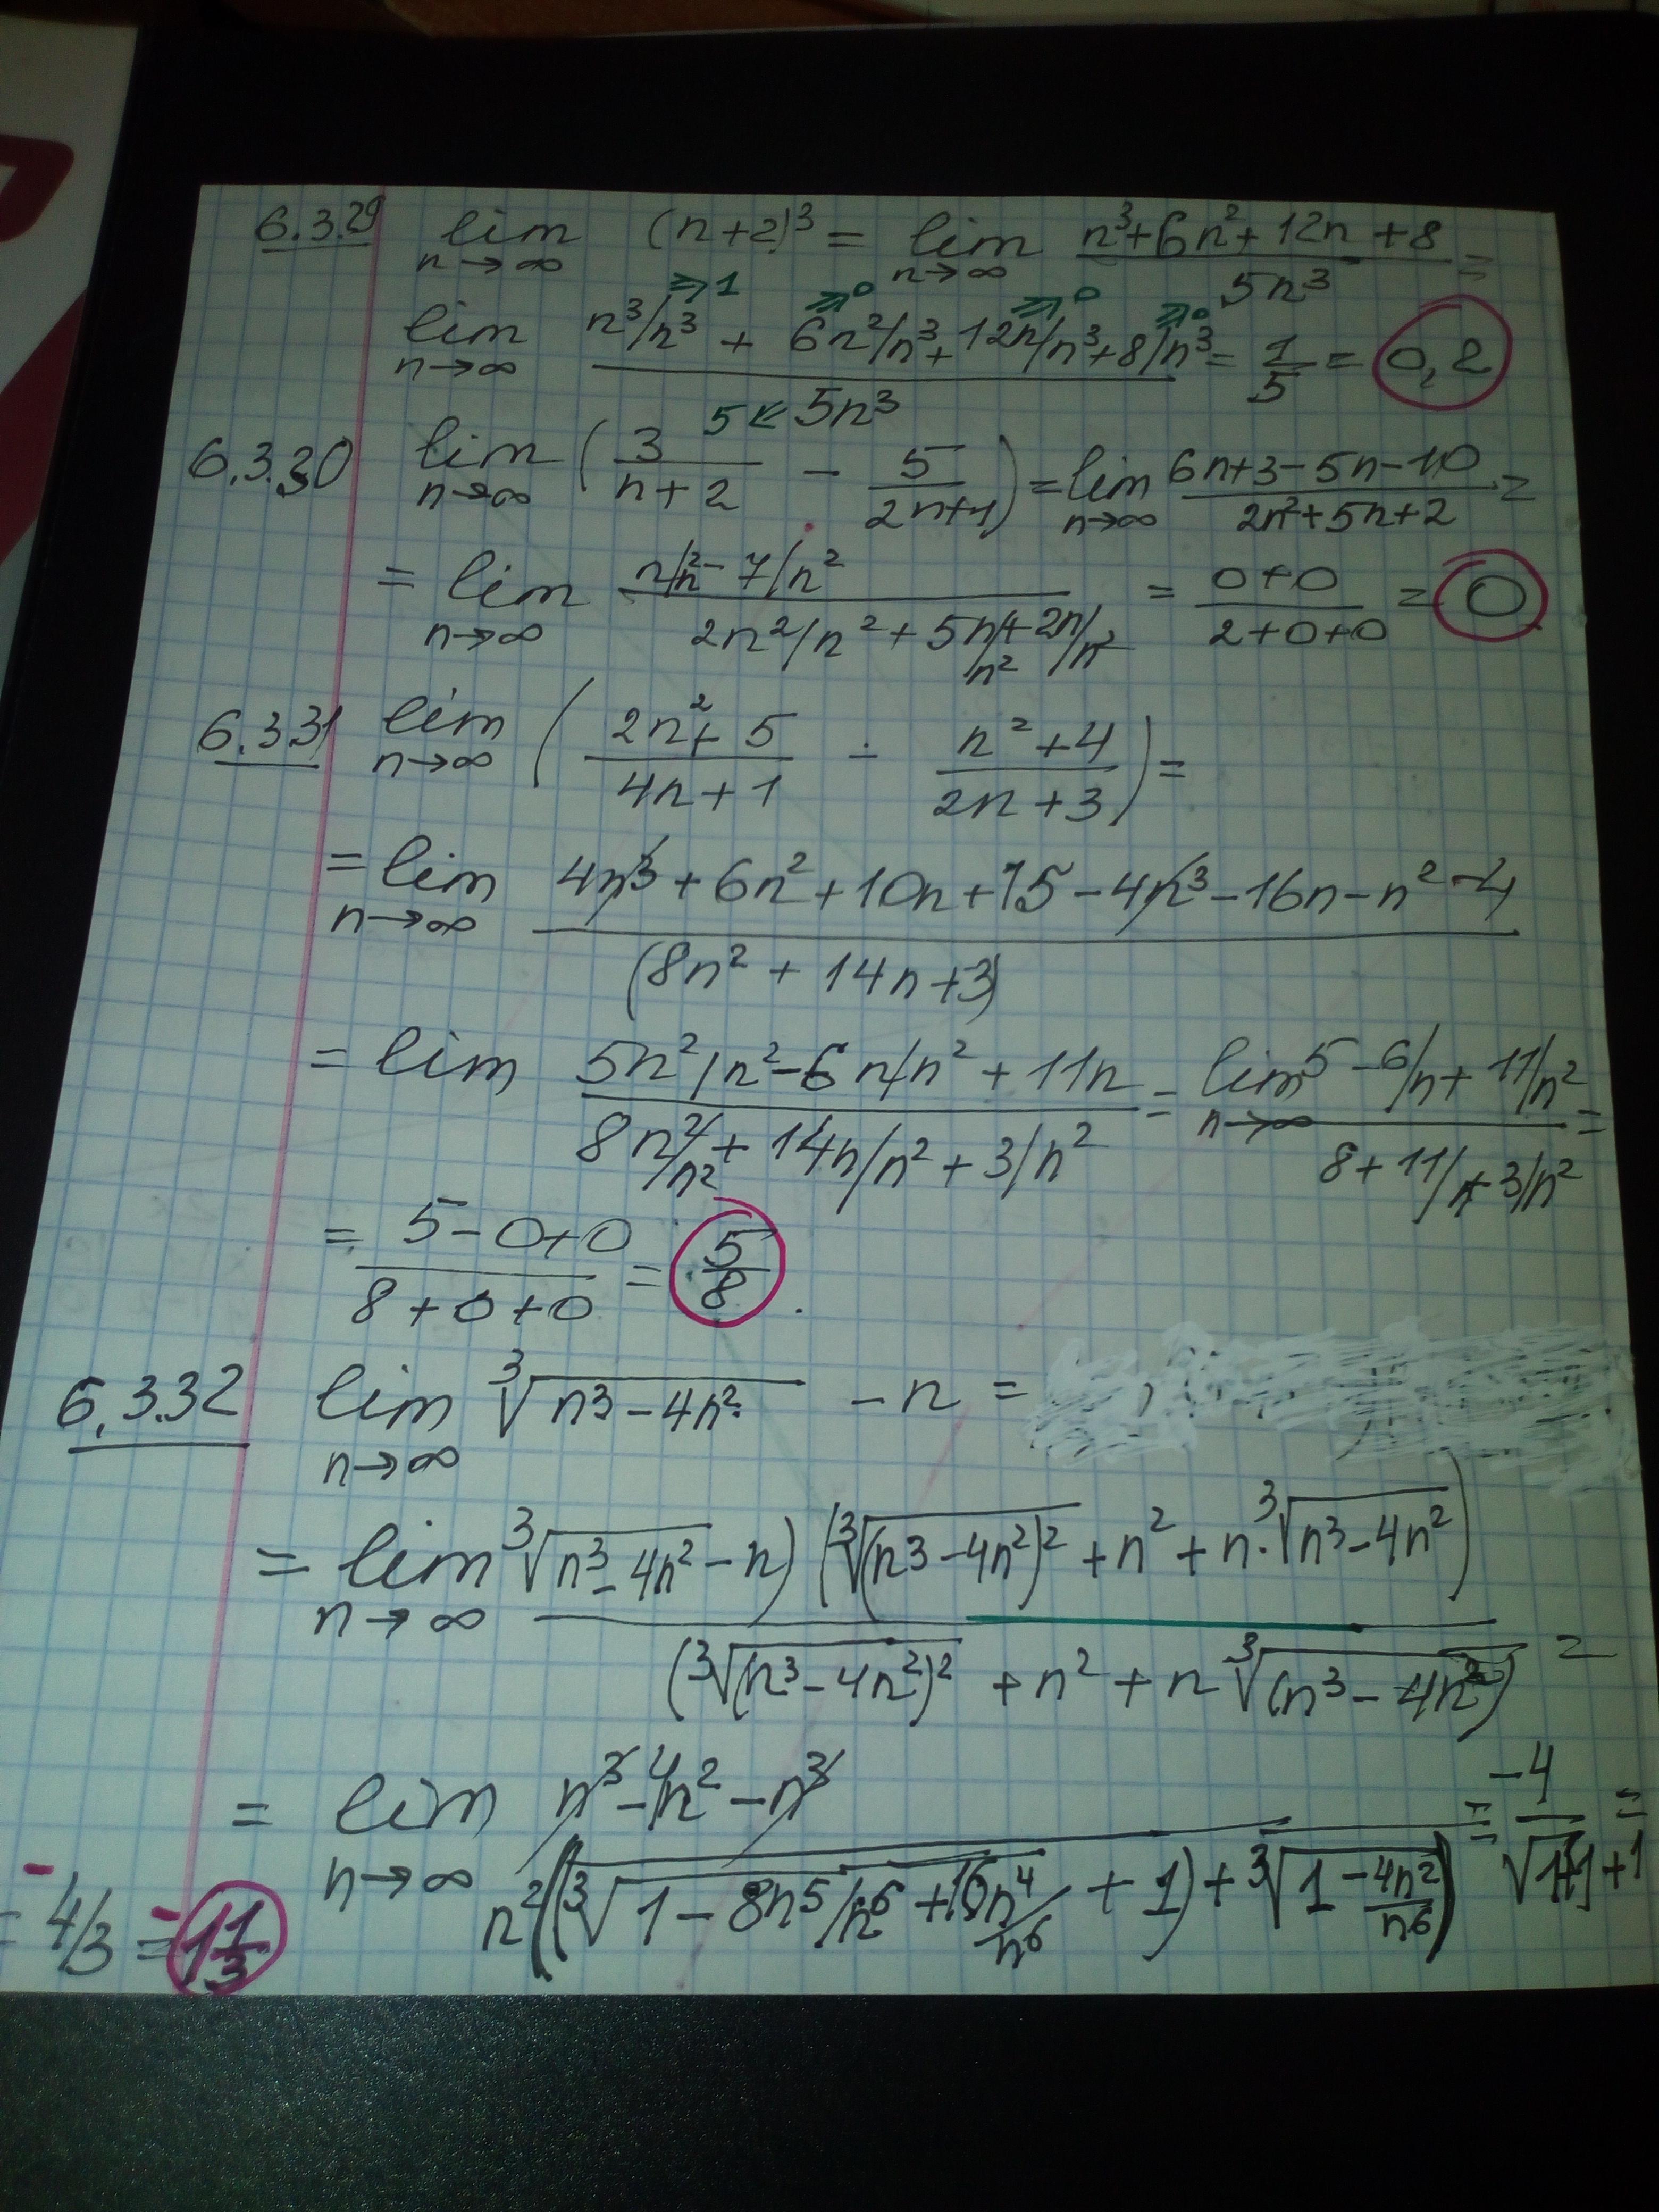 6.3.29 lim n→∞ (n+2)³ = lim n→∞ (n³+6n²+12n+8)/(5n³) =
⇒1 ⇒0 ⇒0 ⇒0
lim n→∞ (n³/n³ + 6n²/n³ + 12n/n³ + 8/n³)/(5n³) = 1/5 = 0,2
5 ⇐
6.3.30 lim n→∞ (3/(n+2) - 5/(2n+1)) = lim n→∞ (6n+3-5n-10)/(2n²+5n+2) =
= lim n→∞ (n/n² - 7/n²)/(2n²/n² + 5n/n² + 2n/n²) = (0+0)/(2+0+0) = 0
6.3.31 lim n→∞ ((2n²+5)/(4n+1) - (n²+4)/(2n+3)) =
= lim n→∞ (4n³+6n²+10n+15-4n³-16n-n²-4)/(8n²+14n+3)
= lim (5n²/n² - 6n/n² + 11n)/(8n²/n² + 14n/n² + 3/n²) = lim n→∞ (5 - 6/n + 11/n²)/(8 + 11/n + 3/n²) =
= (5-0+0)/(8+0+0) = 5/8 .
6.3.32 lim n→∞ ³√(n³-4n²) - n =
= lim n→∞ ³√(n³-4n²) - n) (³√(n³-4n²)² + n² + n·³√(n³-4n²))/(³√(n³-4n²)² + n² + n ³√(n³-4n²)) =
= lim n→∞ (n³-4n²-n³)/(n²((³√(1 - 8n⁵/n⁶ + 16n⁴/n⁶) + 1) + ³√(1 - 4n²/n⁶))) = -4/(√1+1+1) =
= -4/3 = -1 1/3